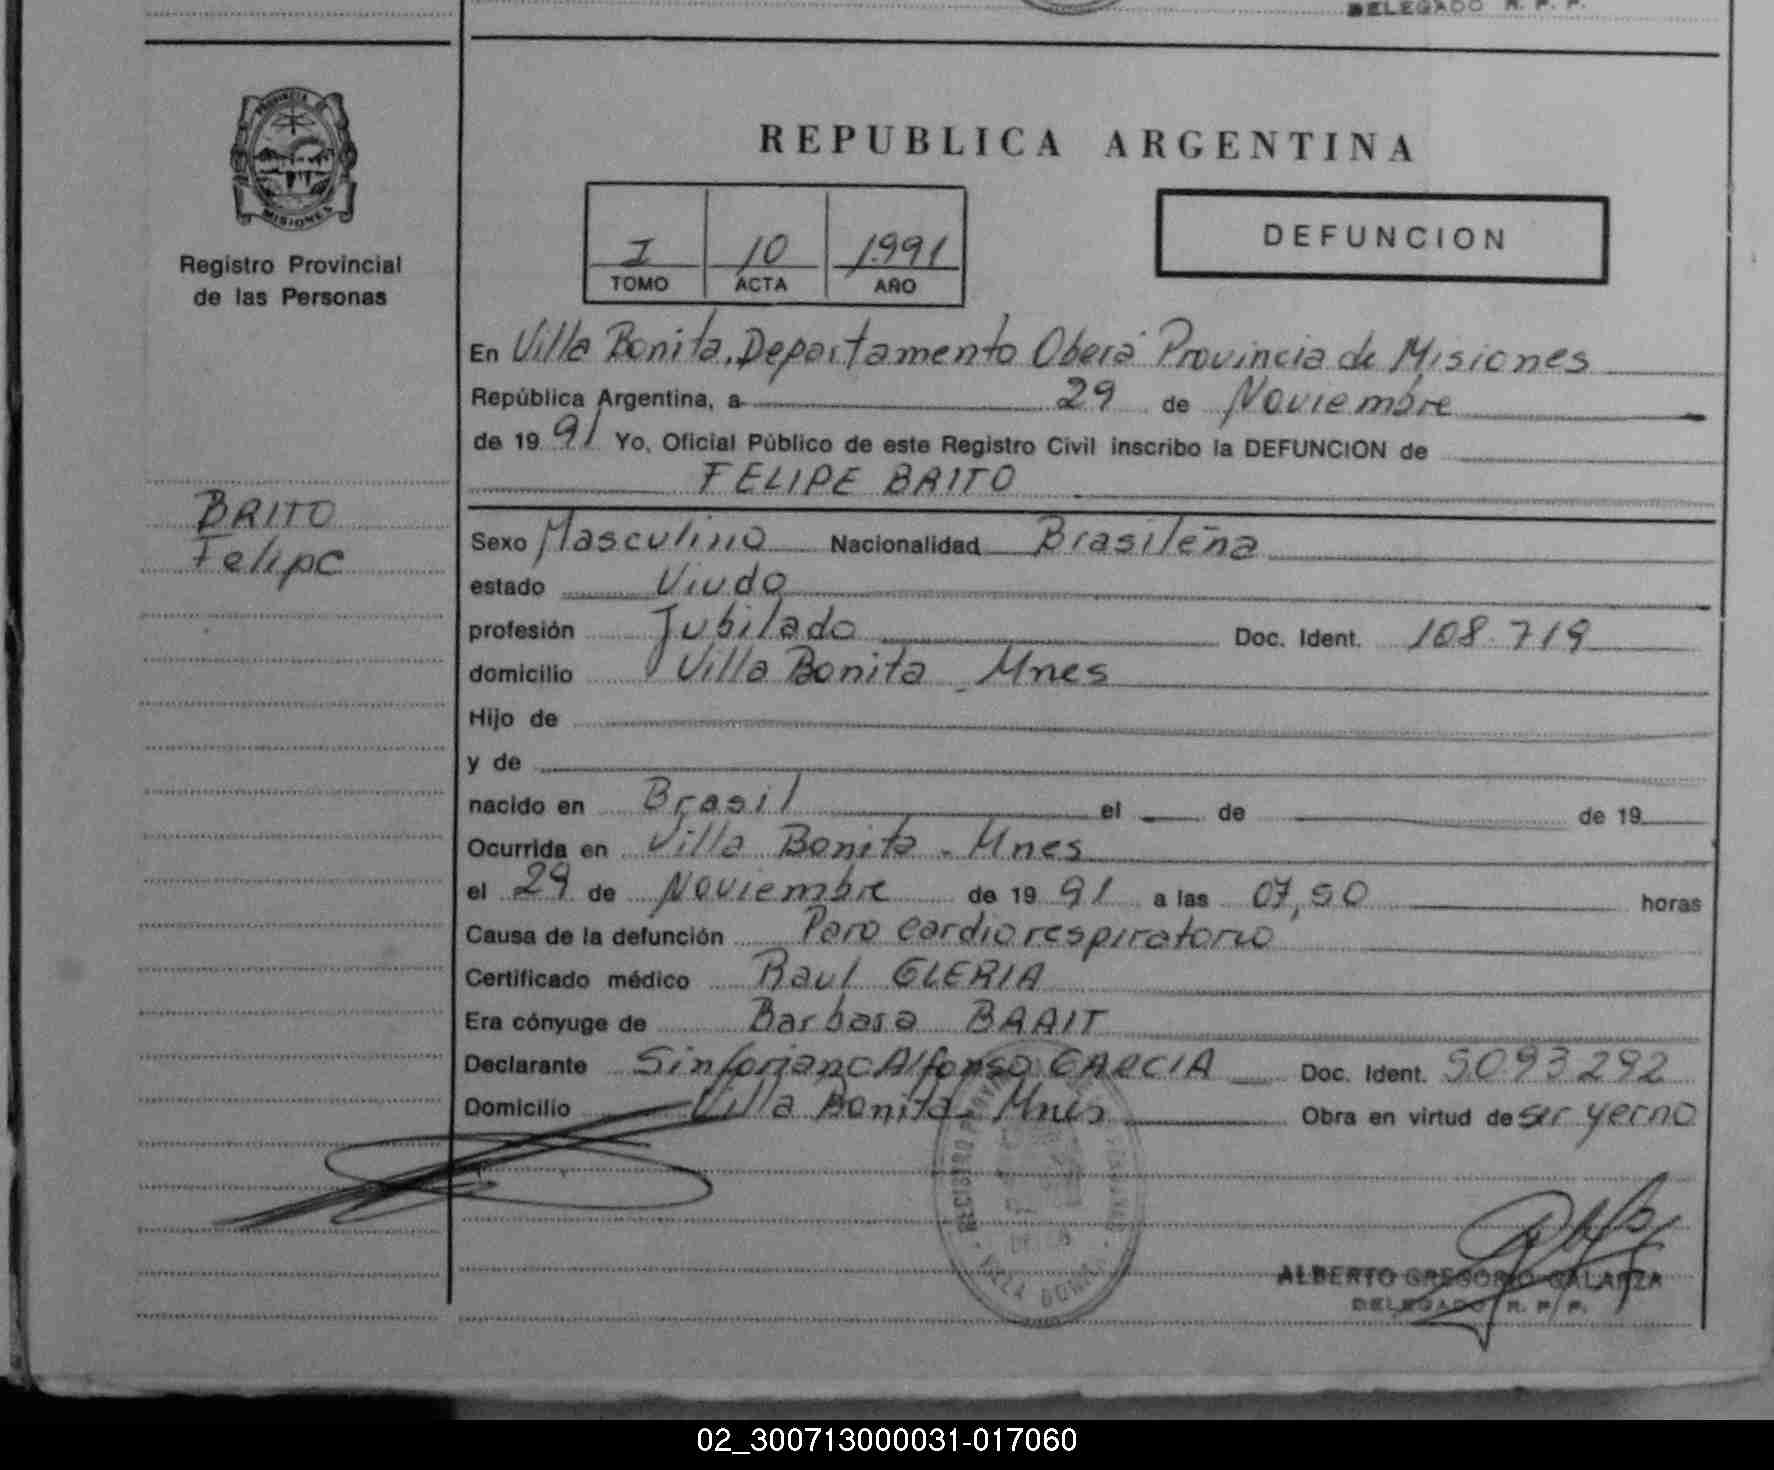 DELEGADO R. P. P.
PROVINCIA DE
MISIONES
Registro Provincial
de las Personas
REPUBLICA ARGENTINA
I 10 1991
TOMO ACTA AÑO
DEFUNCION
En Villa Bonita, Departamento Oberá Provincia de Misiones
República Argentina, a 29 de Noviembre
de 19 91 Yo, Oficial Público de este Registro Civil inscribo la DEFUNCION de
FELIPE BRITO
BRITO
Felipe
Sexo Masculino Nacionalidad Brasileña
estado Viudo
profesión Jubilado Doc. Ident. 108.719
domicilio Villa Bonita - Mnes
Hijo de
y de
nacido en Brasil el de de 19
Ocurrida en Villa Bonita - Mnes
el 29 de Noviembre de 19 91 a las 07,50 horas
Causa de la defunción Paro cardiorespiratorio
Certificado médico Raul GLERIA
Era cónyuge de Barbara BRAIT
Declarante Sinforiano Alfonso GARCIA Doc. Ident. 5093292
Domicilio Villa Bonita - Mnes Obra en virtud de ser yerno
REGISTRO PROVINCIAL
VILLA BONITA
ALBERTO GREGORIO GALARZA
DELEGADO R. P. P.
02_300713000031-017060